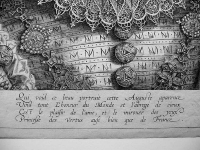 Qui void ce beau portrait cette Auguste
Void tout L'honeur du Monde et l'abrege de
C'est le plaisir de l'ame, et le miroir des yeux
Princesse des Vertus aussi bien que de France.